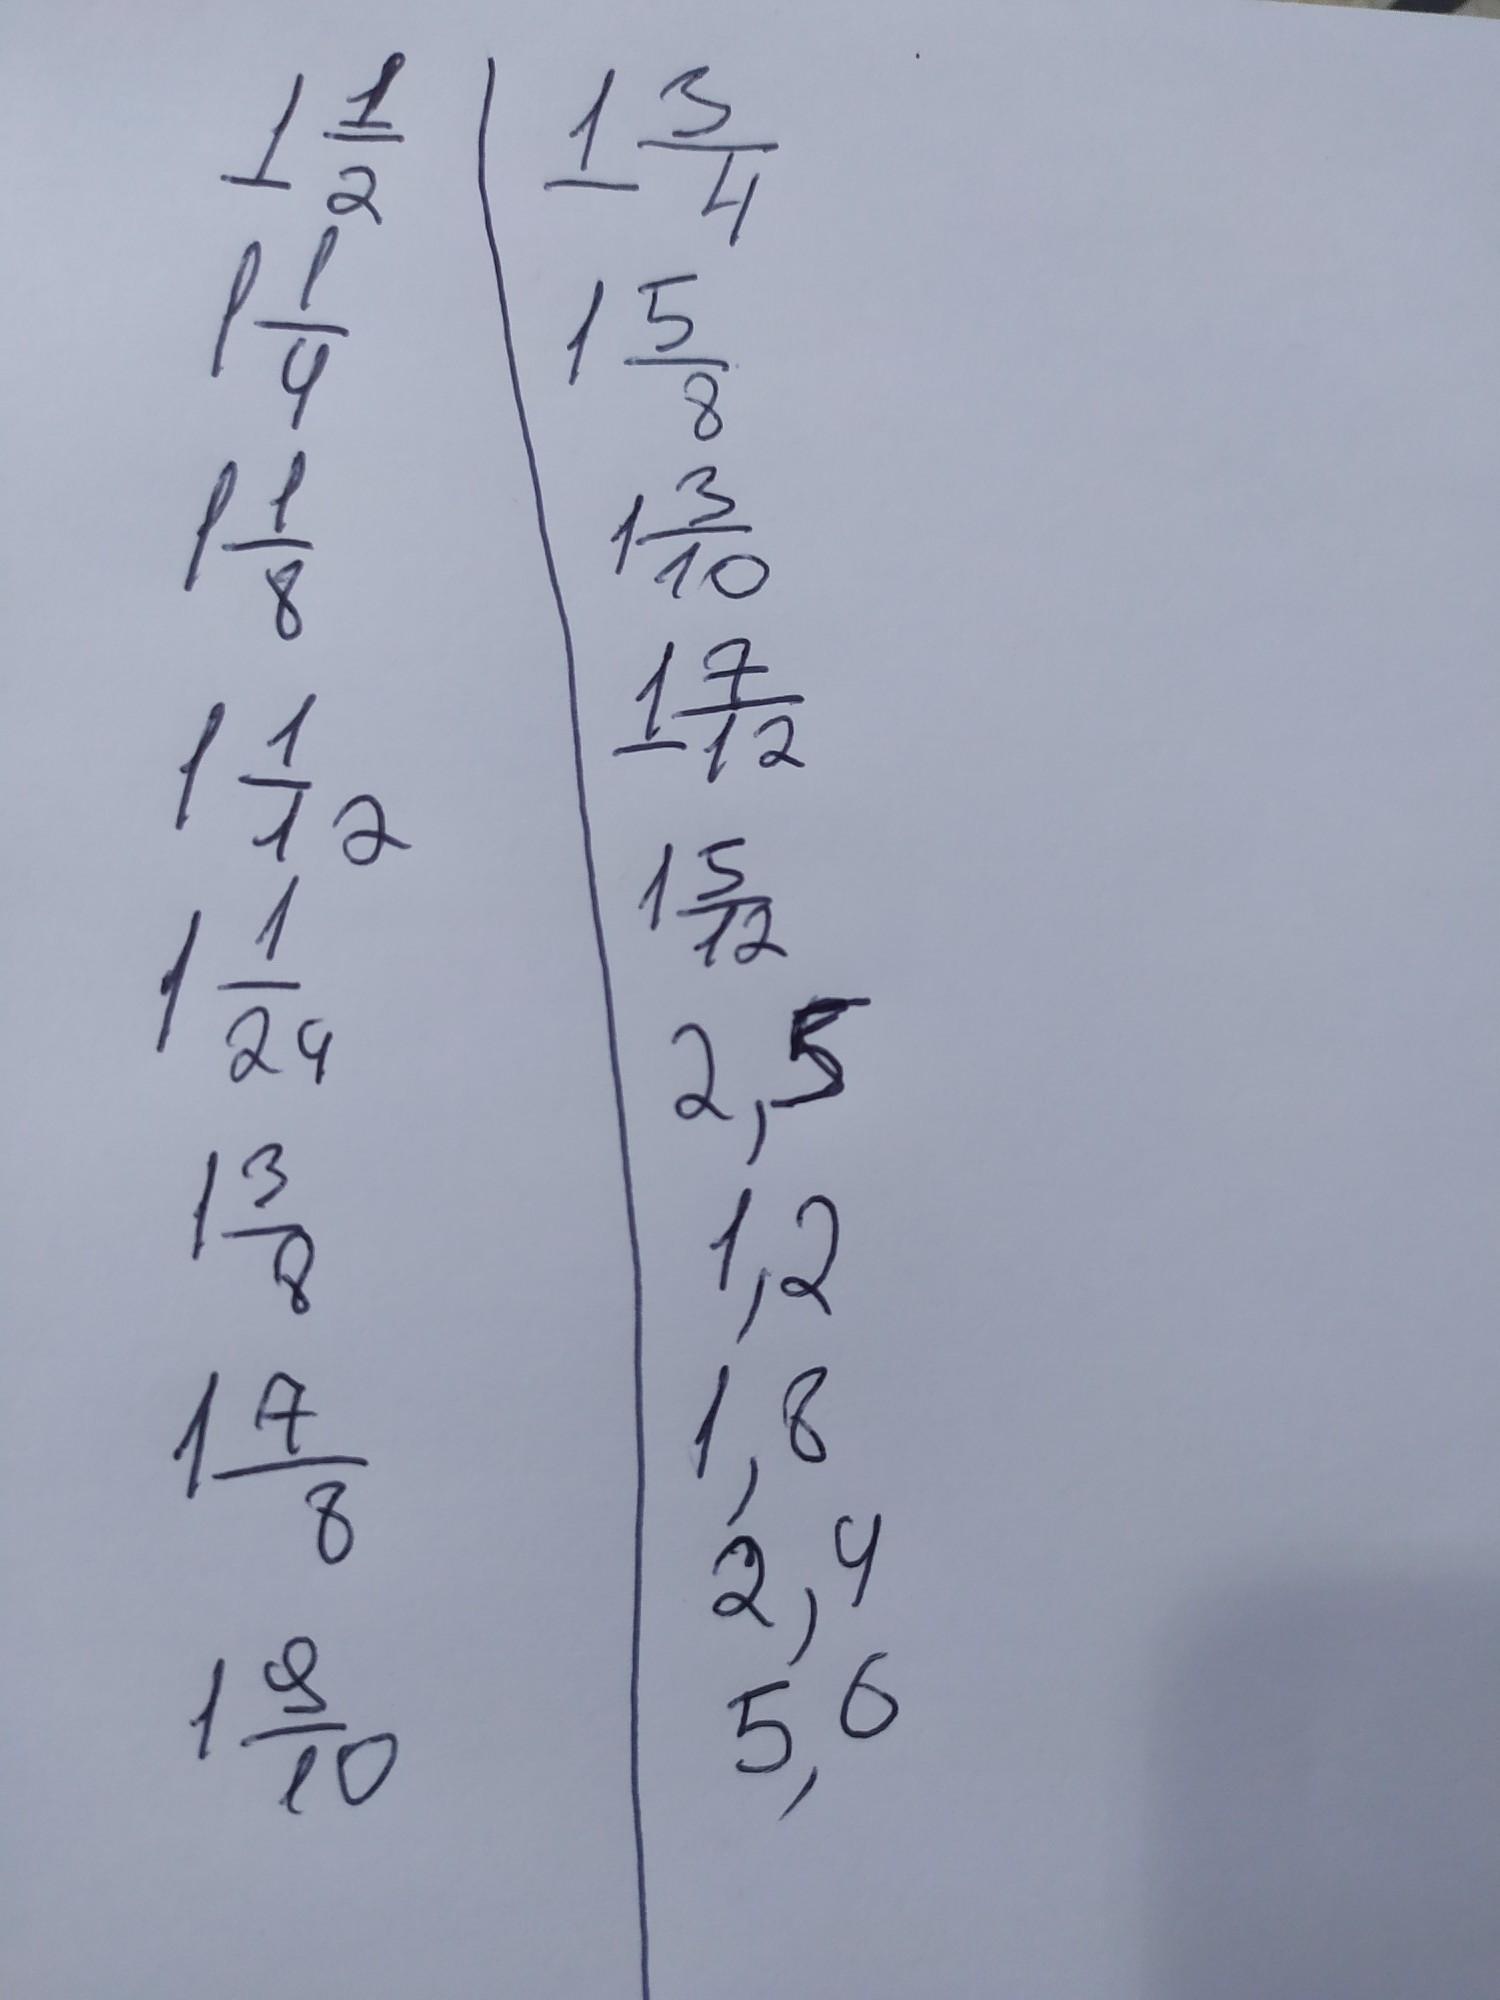 1 1/2
1 1/4
1 1/8
1 1/12
1 1/24
1 3/8
1 7/8
1 9/10
1 3/4
1 5/8
1 3/10
1 7/12
1 5/12
2,5
1,2
1,8
2,4
5,6